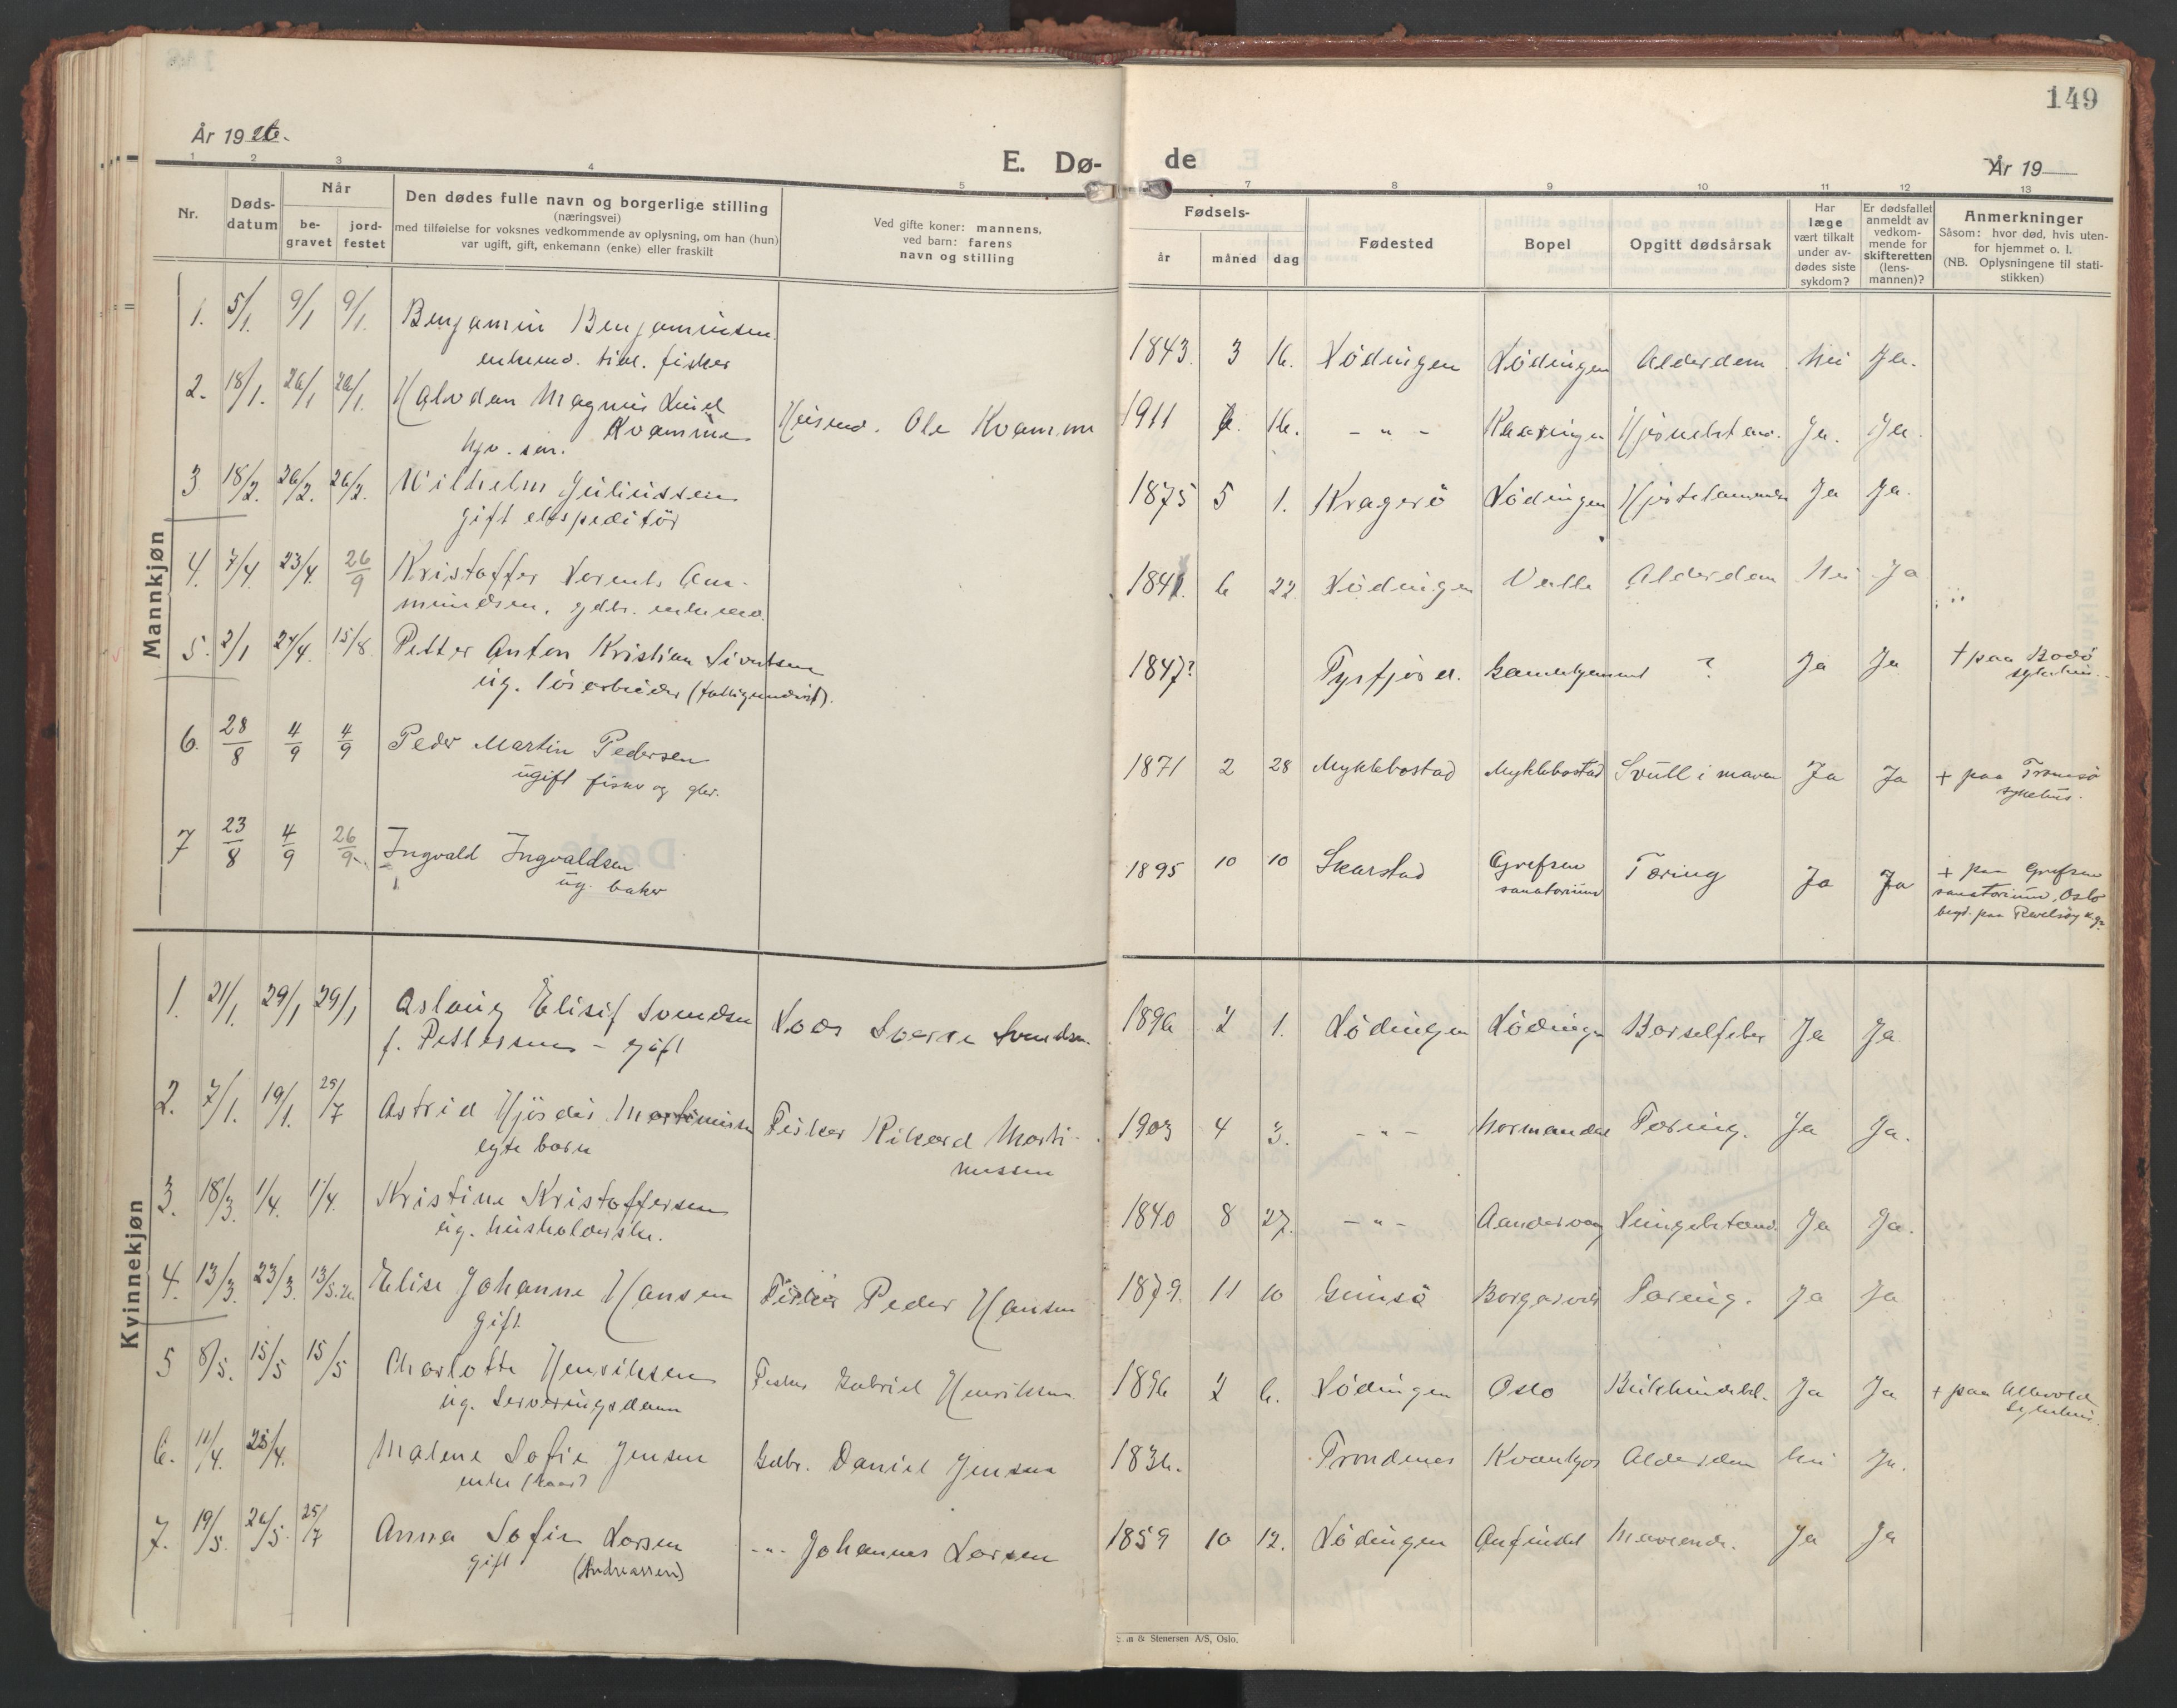 149
År 1926.
E. Dø-
de
År 19
1 2 3 4 5
7 8 9 10 11 12 13
Nr.
Døds-
datum
Når
be-
gravet
jord-
festet
Den dødes fulle navn og borgerlige stilling
(næringsvei)
med tilføielse for voksnes vedkommende av oplysning, om han (hun)
var ugift, gift, enkemann (enke) eller fraskilt
Ved gifte koner: mannens,
ved barn: farens
navn og stilling
Fødsels-
år måned dag
Fødested
Bopel
Opgitt dødsårsak
Har
læge
vært tilkalt
under av-
dødes siste
sykdom?
Er dødsfallet
anmeldt av
vedkom-
mende for
skifteretten
(lens-
mannen)?
Anmerkninger
Såsom: hvor død, hvis uten-
for hjemmet o. l.
(NB. Oplysningene til stati-
stikken)
Mannkjøn
1. 5/1. 9/1 9/1. Benjamin Benjaminsen 1843. 3 16. Lödingen Lödingen Alderdom Nei Ja.
enkem. fisker
2. 18/1. 26/1 26/1. Halvdan Magnus Kvamme Ole Kvamme 1911 16. -"- Kaaringen Ja. Ja.
3 18/2. 26/2. 26/2. Wilhelm Juliussen 1875 5 1. Kragerö Lödingen Ja Ja.
gift ekspeditör
4. 7/4. 23/4. 26/9 Kristoffer Lorents Am-
mundsen, gdbr. enkem. 1841. 6 22. Lödingen Valle Alderdom Nei Ja
5. 2/1 24/4. 15/8. Petter Anton Kristian Sivertsen 1847? Tysfjord. Gamlehjemmet ? Ja Ja † paa Bodö
sykehus.
ug. lösarbeider (fattigunderst).
6. 28/8 4/9 4/9 Peder Martin Pedersen 1871 2 28 Myklebostad Myklebostad Svull i maven Ja Ja + paa Tromsö
sykehus.
ugift fisker og gbr.
7 23/8 4/9 26/9 Ingvald Ingvaldsen 1895 10 10 Skarstad Grefsen
sanatorium Tæring Ja Ja + paa Grefsen
sanatorium, Oslo
ug. baker
Kvinnekjøn
1. 21/1. 29/1 29/1 Aslaug Elisif Svendsen Sverre Svendsen 1896 2 1. Lödingen Lödingen Barselfeber Ja Ja
f. Pettersen - gift
2. 7/1. 19/1. 25/7 Astrid Hjördis Martinussen Fisker Rikard Marti-
nussen 1903 4 3. -"- Normandal Tæring. Ja Ja.
egte barn
3. 18/3. 1/4. 1/4. Kristine Kristoffersen 1840 8 27. -"- Aandervaag Ja Ja.
ug. husholderske.
4. 13/3. 23/3. Elise Johanne Hansen Fisker Peder Hansen 1879. 11 10 Gimsö Borgarvik Tæring. Ja Ja
gift
5 8/5. 15/5 15/5 Charlotte Henriksen Fisker Gabriel Henriksen 1896 2 6. Lödingen Oslo Ja Ja + paa Ullevold
sykehus.
ug. Serveringsdame
6. 11/4. 25/4. Malene Sofie Jensen Gdbr. Daniel Jensen 1836. Trondenes Alderdom Nei Ja.
enke
7. 19/5. 26/5. 25/7 Anna Sofie Larsen -"- Johannes Larsen 1859 10 12. Lödingen Ja Ja
gift (Andreassen)
& Stenersen A/S, Oslo.